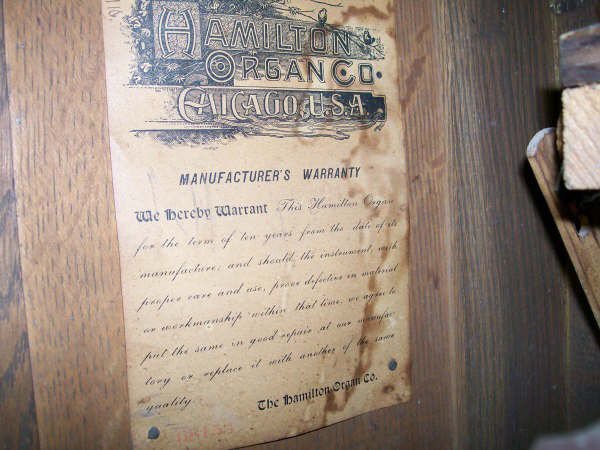 HAMILTON
ORGAN CO.
CHICAGO, U.S.A.
MANUFACTURER'S WARRANTY
We Hereby Warrant This Hamilton Organ
for the term of ten years from the date of its
manufacture; and should the instrument, with
proper care and use, prove defective in material
or workmanship within that time, we agree to
put the same in good repair at our manufac-
tory or replace it with another of the same
quality.
The Hamilton Organ Co.